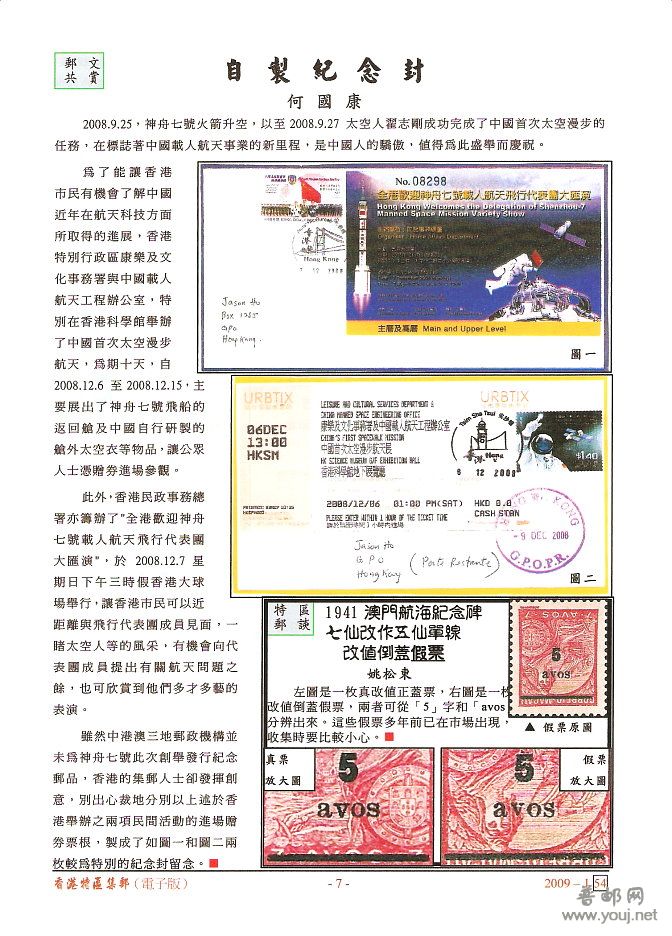 郵文
共賞
自製紀念封
何國康
2008.9.25，神舟七號火箭升空，以至 2008.9.27 太空人翟志剛成功完成了中國首次太空漫步的
任務，在標誌著中國載人航天事業的新里程，是中國人的驕傲，值得為此盛舉而慶祝。
為了能讓香港
市民有機會了解中國
近年在航天科技方面
所取得的進展，香港
特別行政區康樂及文
化事務署與中國載人
航天工程辦公室，特
別在香港科學館舉辦
了中國首次太空漫步
航天，為期十天，自
2008.12.6 至 2008.12.15，主
要展出了神舟七號飛船的
返回艙及中國自行研製的
艙外太空衣等物品，讓公眾
人士憑贈券進場參觀。
此外，香港民政事務總
署亦籌辦了"全港歡迎神舟
七號載人航天飛行代表團
大匯演"，於 2008.12.7 星
期日下午三時假香港大球
場舉行，讓香港市民可以近
距離與飛行代表團成員見面，一
睹太空人等的風采，有機會向代
表團成員提出有關航天問題之
餘，也可欣賞到他們多才多藝的
表演。
雖然中港澳三地郵政機構並
未為神舟七號此次創舉發行紀念
郵品，香港的集郵人士卻發揮創
意，別出心裁地分別以上述於香
港舉辦之兩項民間活動的進場贈
券票根，製成了如圖一和圖二兩
枚較為特別的紀念封留念。
No. 08298
全港歡迎神舟七號載人航天飛行代表團大匯演
Hong Kong Welcomes the Delegation of Shenzhou-7
Manned Space Mission Variety Show
Hong Kong
7 12 2008
Jason Ho
GPO
Hong Kong.
主層及高層 Main and Upper Level
圖一
URBTIX
URBTIX
06DEC
13:00
HKSM
LEISURE AND CULTURAL SERVICES DEPARTMENT &
CHINA MANNED SPACE ENGINEERING OFFICE
康樂及文化事務署及中國載人航天工程辦公室
CHINA'S FIRST SPACEWALK MISSION
中國首次太空漫步航天展
HK SCIENCE MUSEUM G/F EXHIBITION HALL
香港科學館地下展覽廳
2008/12/06 01:00 PM(SAT) HKD 0.0
CASH STDAN
PLEASE ENTER WITHIN 1 HOUR OF THE TICKET TIME
Tsim Sha Tsui 尖沙咀
6 12 2008
$1.40
HONG KONG
-9 DEC 2008
G.P.O.P.R.
Jason Ho
G P O
Hong Kong
(Poste Restante)
圖二
特區
郵談
1941 澳門航海紀念碑
七仙改作五仙單線
改值倒蓋假票
姚松東
左圖是一枚真改值正蓋票，右圖是一枚
改值倒蓋假票，兩者可從「5」字和「avos」
分辨出來。這些假票多年前已在市場出現，
收集時要比較小心。
5
avos
▲ 假票原圖
真票
放大圖
5
avos
假票
放大圖
5
avos
香港特區集郵（電子版）
- 7 -
2009 – 1 54
香邮网
www.youj.net